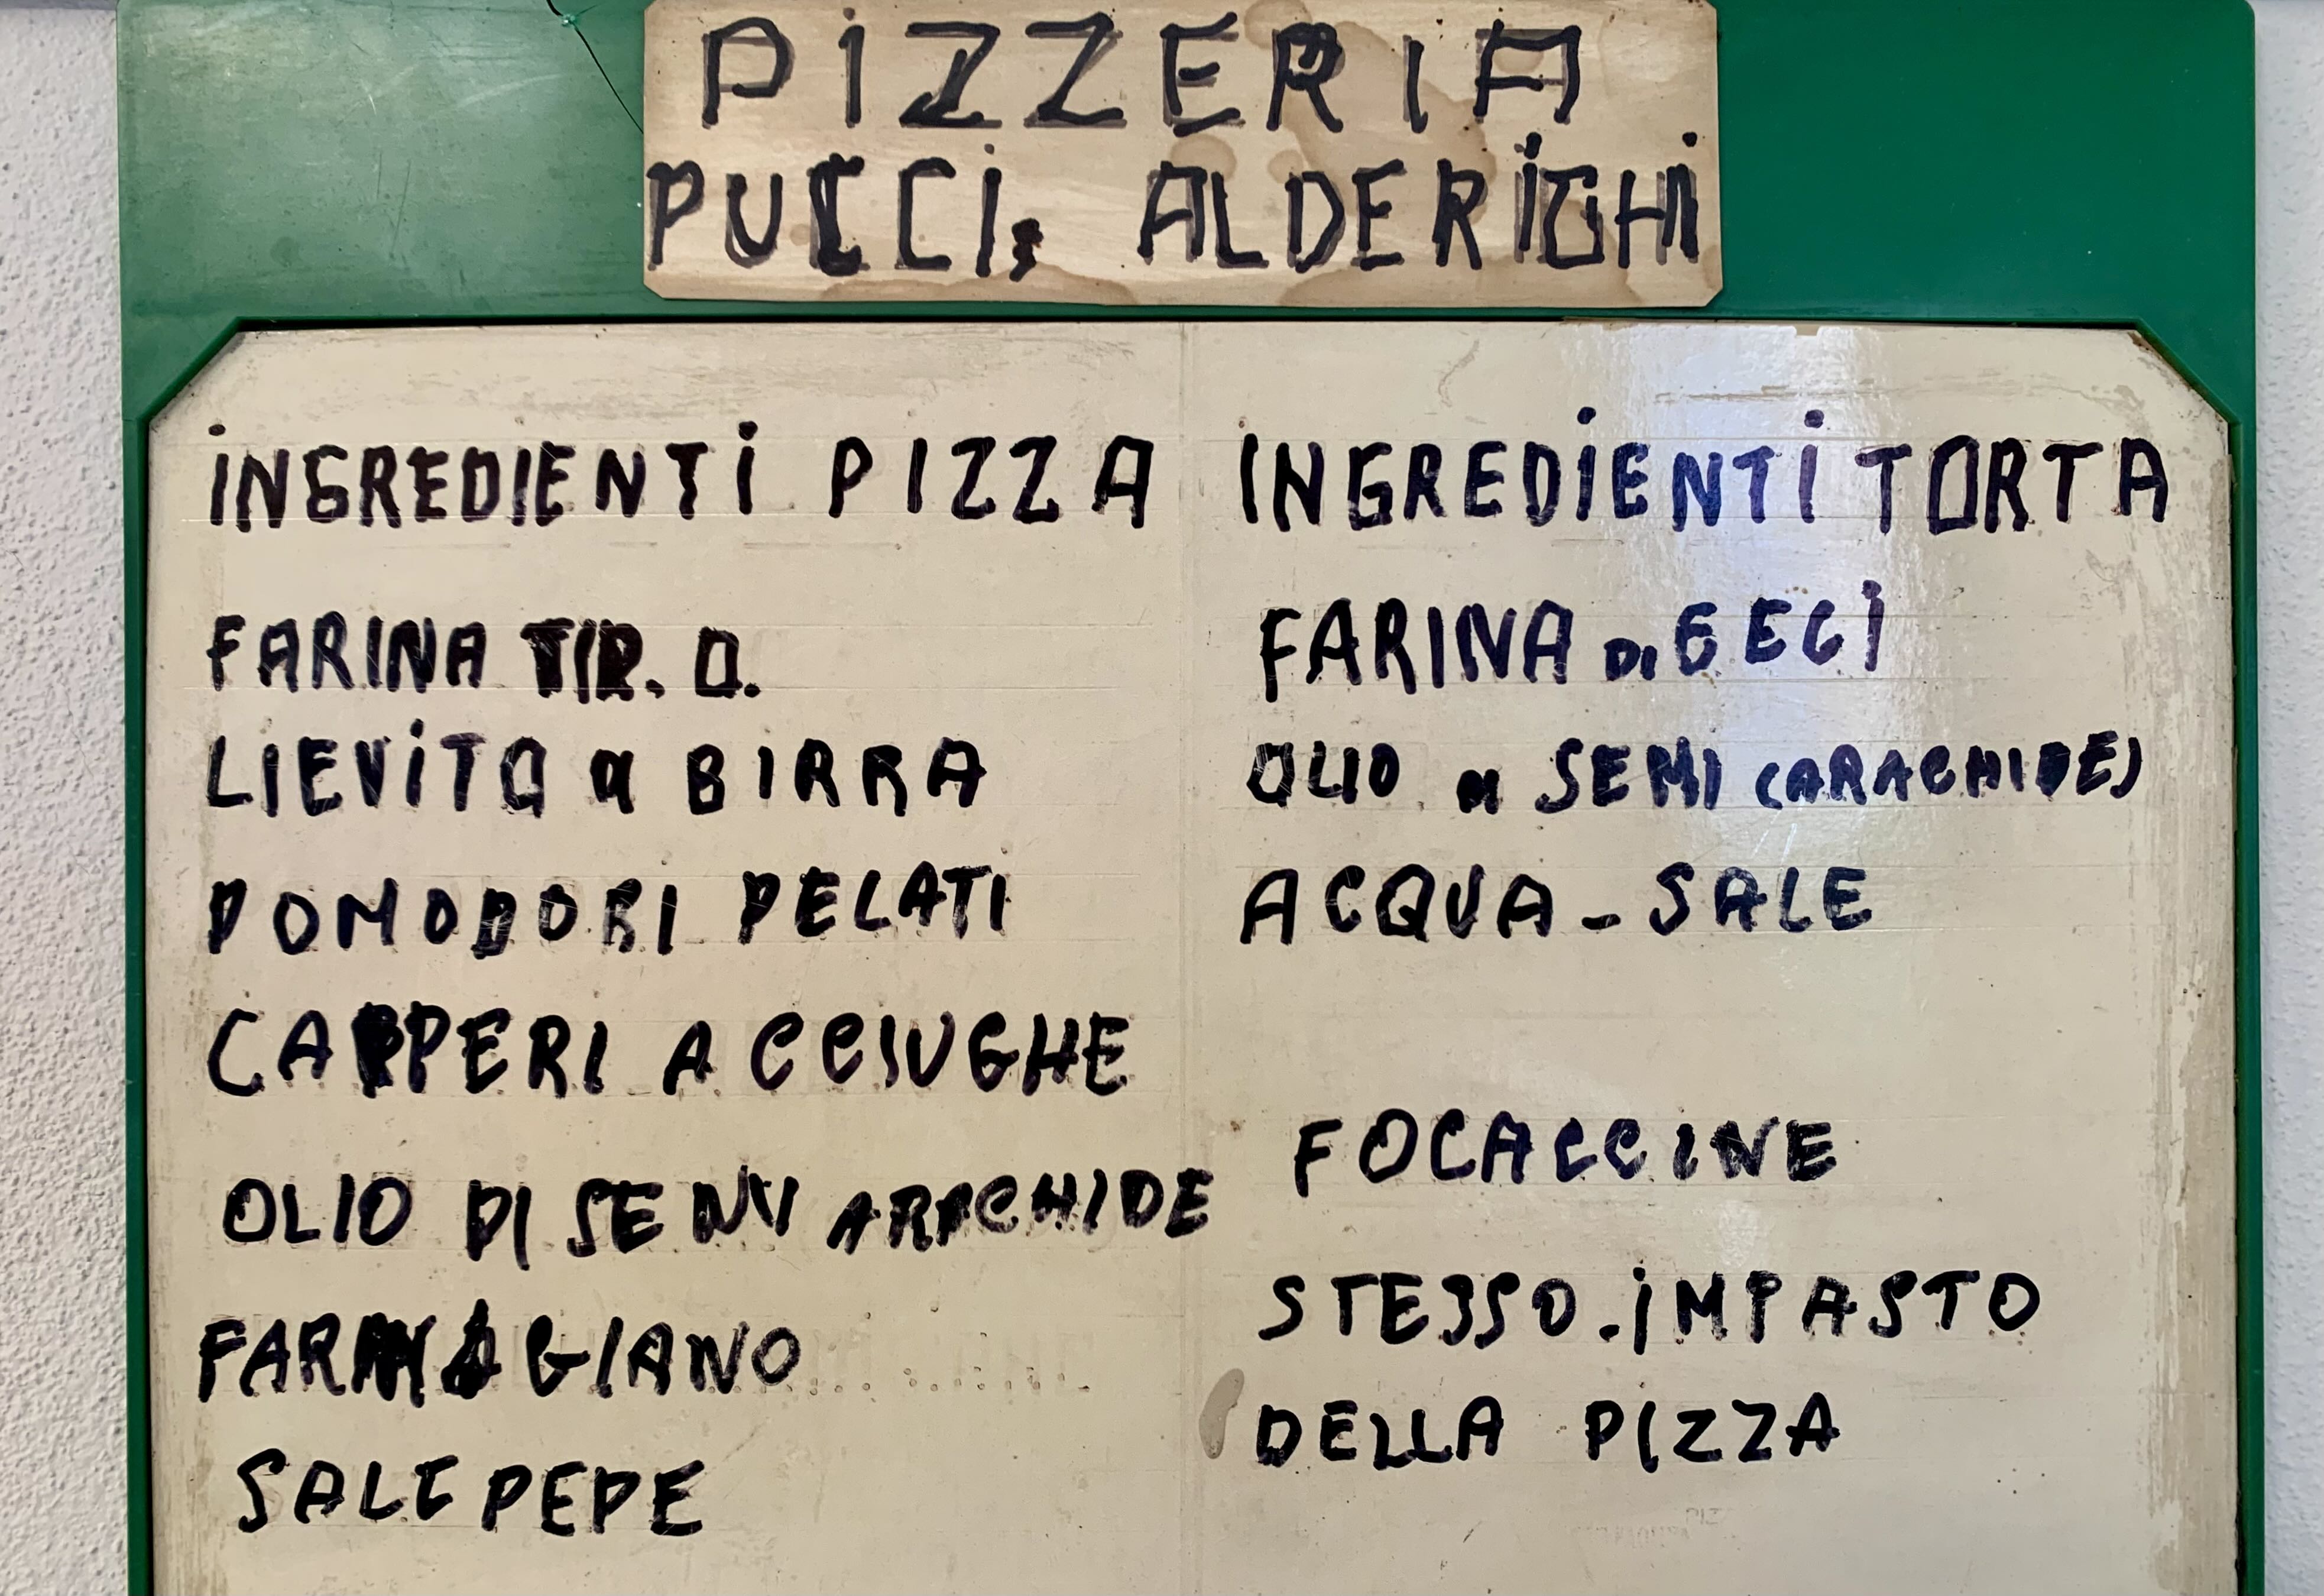 PIZZERIA
PUCCI, ALDERIGHI
INGREDIENTI PIZZA
FARINA TIP. O.
LIEVITO DI BIRRA
POMODORI PELATI
CAPPERI ACCIUGHE
OLIO DI SEMI ARACHIDE
FARMIGIANO
SALE PEPE
INGREDIENTI TORTA
FARINA DI CECI
OLIO DI SEMI (ARACHIDE)
ACQUA - SALE
FOCACCINE
STESSO. IMPASTO
DELLA PIZZA